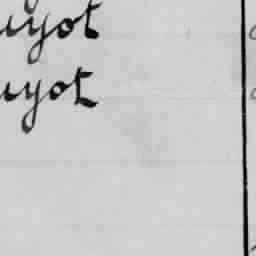 uyot
uyot